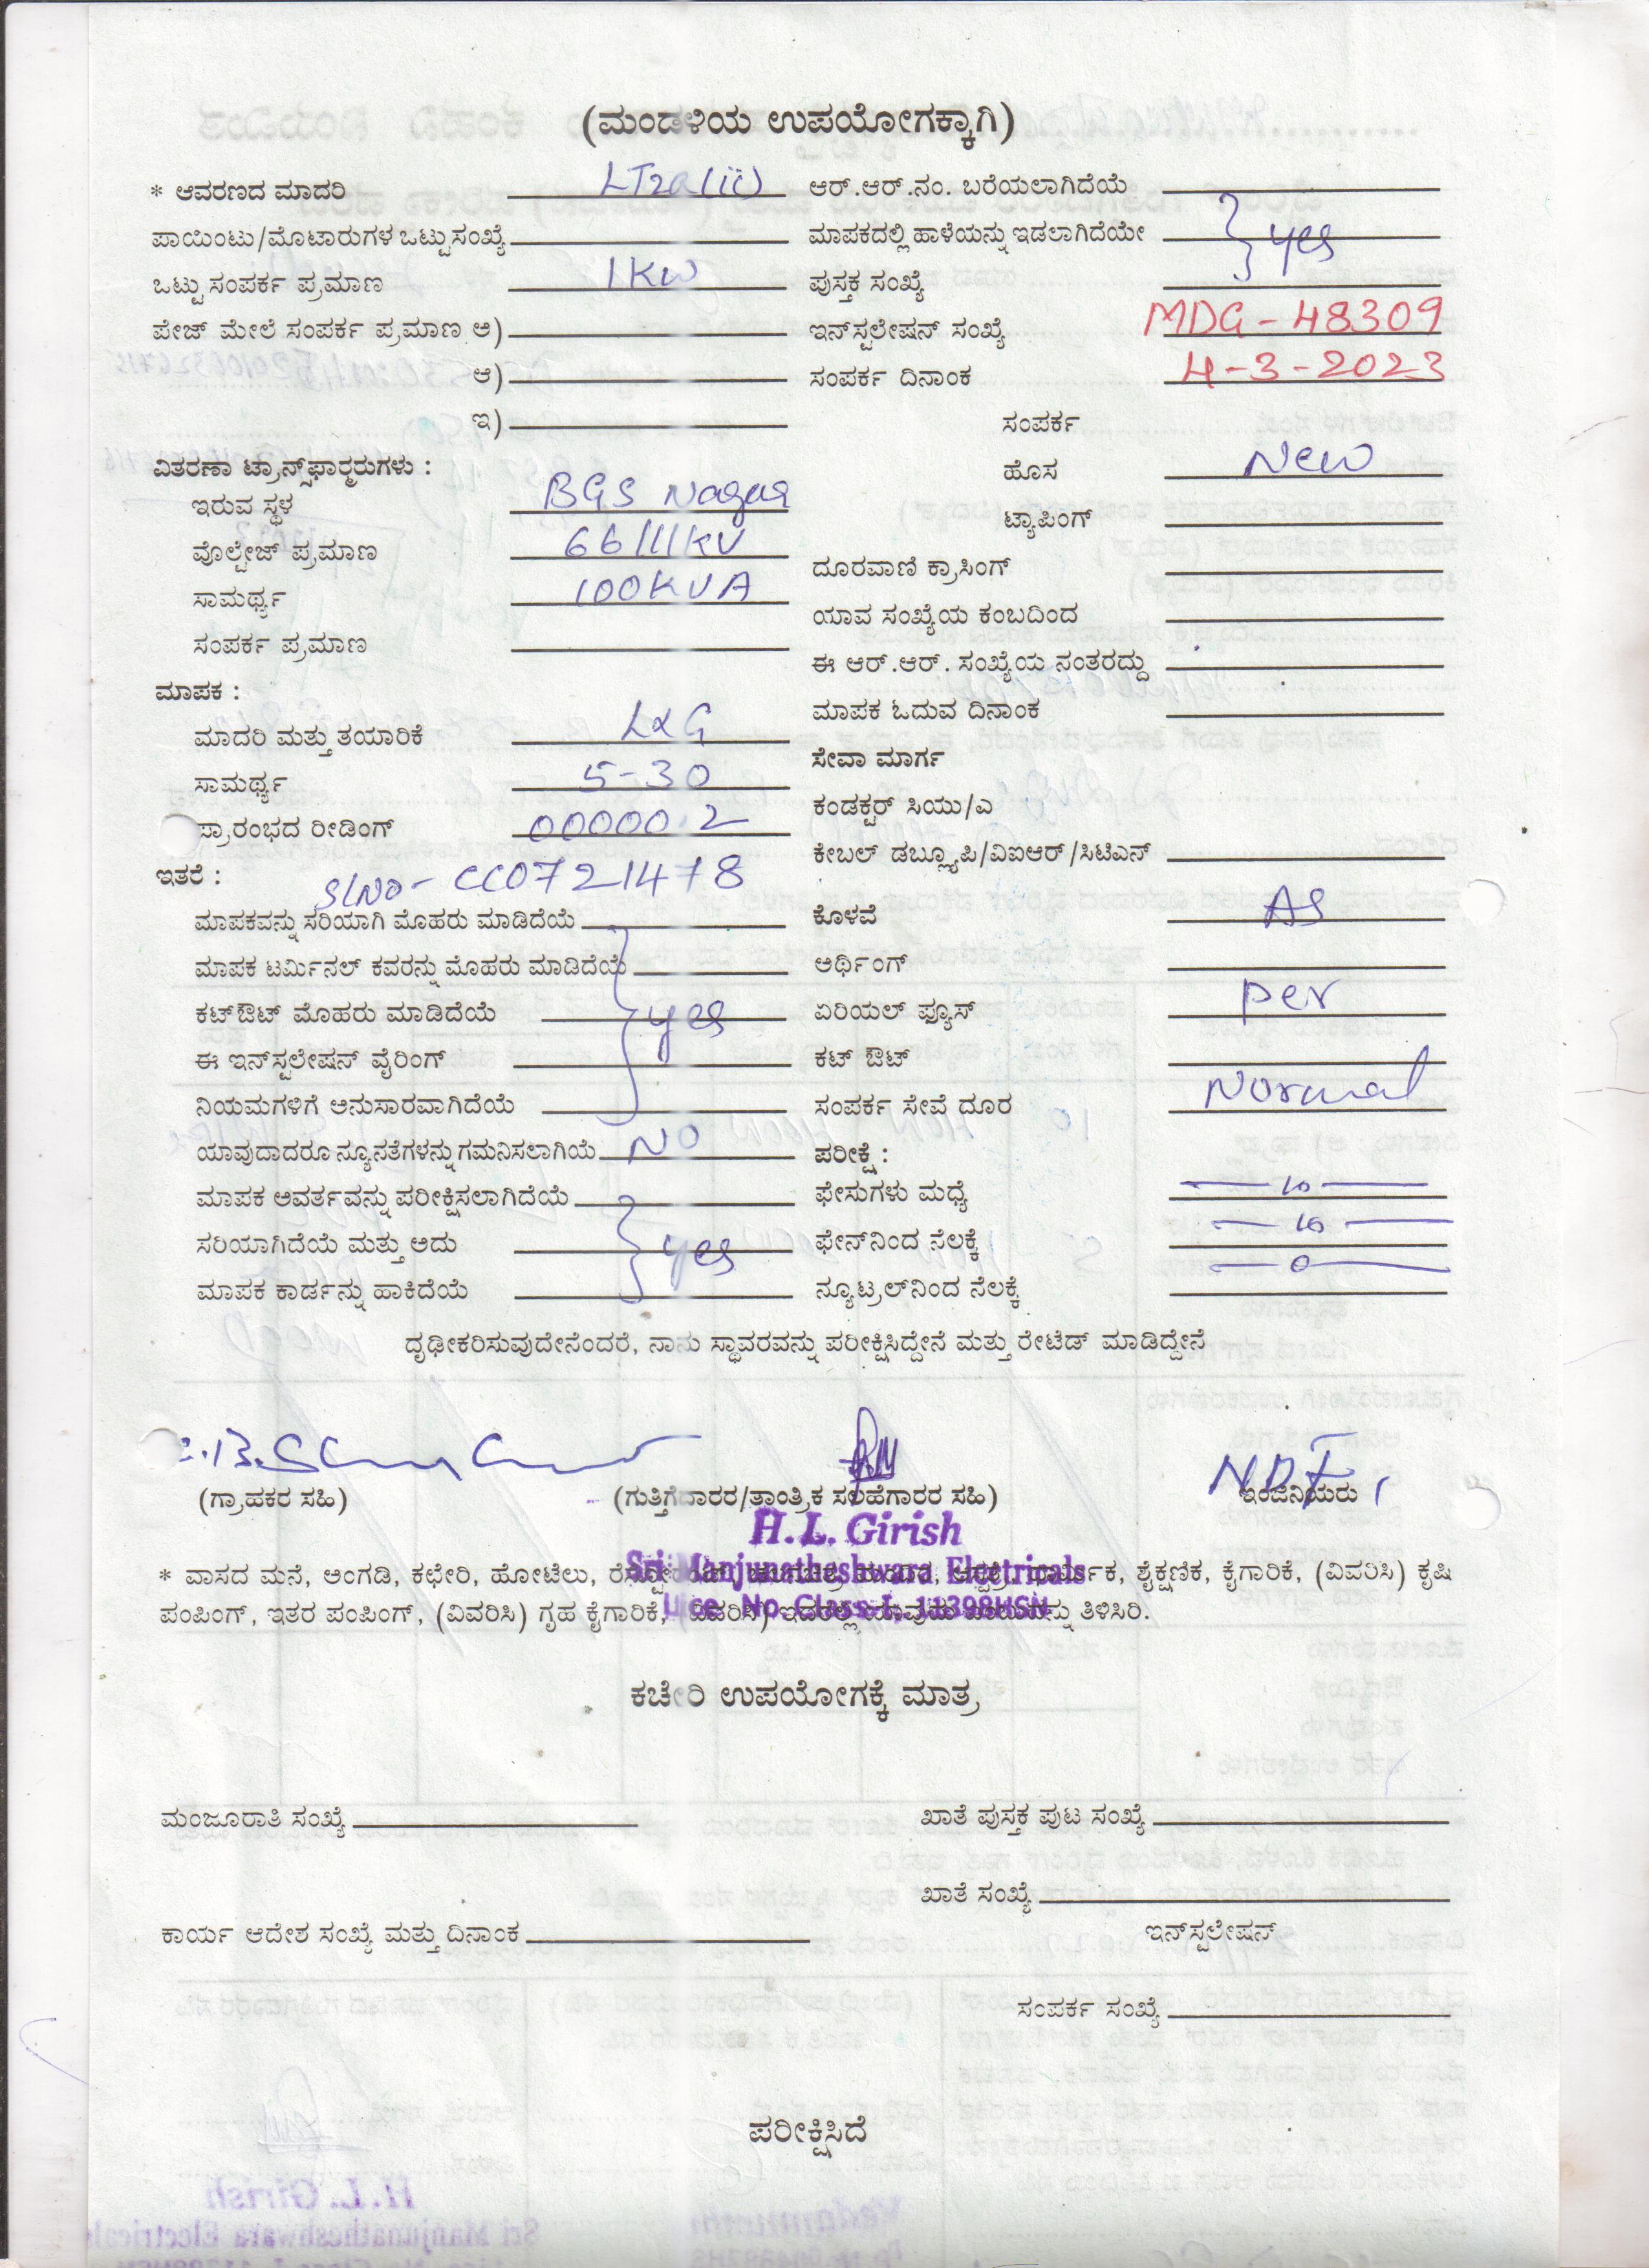 (ಮಂಡಳಿಯ ಉಪಯೋಗಕ್ಕಾಗಿ)
* ಆವರಣದ ಮಾದರಿ LT2a(ii)
ಪಾಯಿಂಟು/ಮೊಟಾರುಗಳ ಒಟ್ಟು ಸಂಖ್ಯೆ
ಒಟ್ಟು ಸಂಪರ್ಕ ಪ್ರಮಾಣ 1KW
ಪೇಜ್ ಮೇಲೆ ಸಂಪರ್ಕ ಪ್ರಮಾಣ ಅ)
ಆ)
ಇ)
ವಿತರಣಾ ಟ್ರಾನ್ಸ್‌ಫಾರ್‍ಮರುಗಳು :
ಇರುವ ಸ್ಥಳ BGS Nagar
ವೊಲ್ಟೇಜ್ ಪ್ರಮಾಣ 66/11KV
ಸಾಮರ್ಥ್ಯ 100KVA
ಸಂಪರ್ಕ ಪ್ರಮಾಣ
ಮಾಪಕ :
ಮಾದರಿ ಮತ್ತು ತಯಾರಿಕೆ L&G
ಸಾಮರ್ಥ್ಯ 5-30
ಪ್ರಾರಂಭದ ರೀಡಿಂಗ್ 00000.2
ಇತರೆ : SLNO- CC0721478
ಮಾಪಕವನ್ನು ಸರಿಯಾಗಿ ಮೊಹರು ಮಾಡಿದೆಯೆ
ಮಾಪಕ ಟರ್ಮಿನಲ್ ಕವರನ್ನು ಮೊಹರು ಮಾಡಿದೆಯೆ
ಕಟ್‌ಔಟ್ ಮೊಹರು ಮಾಡಿದೆಯೆ yes
ಈ ಇನ್‌ಸ್ಟಲೇಷನ್ ವೈರಿಂಗ್
ನಿಯಮಗಳಿಗೆ ಅನುಸಾರವಾಗಿದೆಯೆ
ಯಾವುದಾದರೂ ನ್ಯೂನತೆಗಳನ್ನು ಗಮನಿಸಲಾಗಿಯೆ NO
ಮಾಪಕ ಅವರ್ತವನ್ನು ಪರೀಕ್ಷಿಸಲಾಗಿದೆಯೆ
ಸರಿಯಾಗಿದೆಯೆ ಮತ್ತು ಅದು yes
ಮಾಪಕ ಕಾರ್ಡನ್ನು ಹಾಕಿದೆಯೆ
ಆರ್.ಆರ್.ನಂ. ಬರೆಯಲಾಗಿದೆಯೆ
ಮಾಪಕದಲ್ಲಿ ಹಾಳೆಯನ್ನು ಇಡಲಾಗಿದೆಯೇ yes
ಪುಸ್ತಕ ಸಂಖ್ಯೆ
ಇನ್‌ಸ್ಟಲೇಷನ್ ಸಂಖ್ಯೆ MDG-48309
ಸಂಪರ್ಕ ದಿನಾಂಕ 4-3-2023
ಸಂಪರ್ಕ
ಹೊಸ New
ಟ್ಯಾಪಿಂಗ್
ದೂರವಾಣಿ ಕ್ರಾಸಿಂಗ್
ಯಾವ ಸಂಖ್ಯೆಯ ಕಂಬದಿಂದ
ಈ ಆರ್.ಆರ್. ಸಂಖ್ಯೆಯ ನಂತರದ್ದು
ಮಾಪಕ ಓದುವ ದಿನಾಂಕ
ಸೇವಾ ಮಾರ್ಗ
ಕಂಡಕ್ಟರ್ ಸಿಯು/ಎ
ಕೇಬಲ್ ಡಬ್ಲ್ಯೂಪಿ/ವಿಐಆರ್/ಸಿಟಿಎನ್
ಕೊಳವೆ AS
ಅರ್ಥಿಂಗ್
ಏರಿಯಲ್ ಫ್ಯೂಸ್ per
ಕಟ್ ಔಟ್
ಸಂಪರ್ಕ ಸೇವೆ ದೂರ Normal
ಪರೀಕ್ಷೆ :
ಫೇಸುಗಳು ಮಧ್ಯೆ
ಫೇನ್‌ನಿಂದ ನೆಲಕ್ಕೆ
ನ್ಯೂಟ್ರಲ್‌ನಿಂದ ನೆಲಕ್ಕೆ
ದೃಢೀಕರಿಸುವುದೇನೆಂದರೆ, ನಾನು ಸ್ಥಾವರವನ್ನು ಪರೀಕ್ಷಿಸಿದ್ದೇನೆ ಮತ್ತು ರೇಟೆಡ್ ಮಾಡಿದ್ದೇನೆ
(ಗ್ರಾಹಕರ ಸಹಿ) (ಗುತ್ತಿಗೆದಾರರ/ತಾಂತ್ರಿಕ ಸಲಹೆಗಾರರ ಸಹಿ) ಇಂಜಿನಿಯರು
H.L. Girish
Sri Manjunatheshwara Electricals
Lice. No. Class-I. 11398HSN
* ವಾಸದ ಮನೆ, ಅಂಗಡಿ, ಕಛೇರಿ, ಹೋಟೆಲು, ಶೈಕ್ಷಣಿಕ, ಕೈಗಾರಿಕೆ, (ವಿವರಿಸಿ) ಕೃಷಿ
ಪಂಪಿಂಗ್, ಇತರ ಪಂಪಿಂಗ್, (ವಿವರಿಸಿ) ಗೃಹ ಕೈಗಾರಿಕೆ, ತಿಳಿಸಿರಿ.
ಕಚೇರಿ ಉಪಯೋಗಕ್ಕೆ ಮಾತ್ರ
ಮಂಜೂರಾತಿ ಸಂಖ್ಯೆ ಖಾತೆ ಪುಸ್ತಕ ಪುಟ ಸಂಖ್ಯೆ
ಖಾತೆ ಸಂಖ್ಯೆ
ಕಾರ್ಯ ಆದೇಶ ಸಂಖ್ಯೆ ಮತ್ತು ದಿನಾಂಕ ಇನ್‌ಸ್ಟಲೇಷನ್
ಸಂಪರ್ಕ ಸಂಖ್ಯೆ
ಪರೀಕ್ಷಿಸಿದೆ